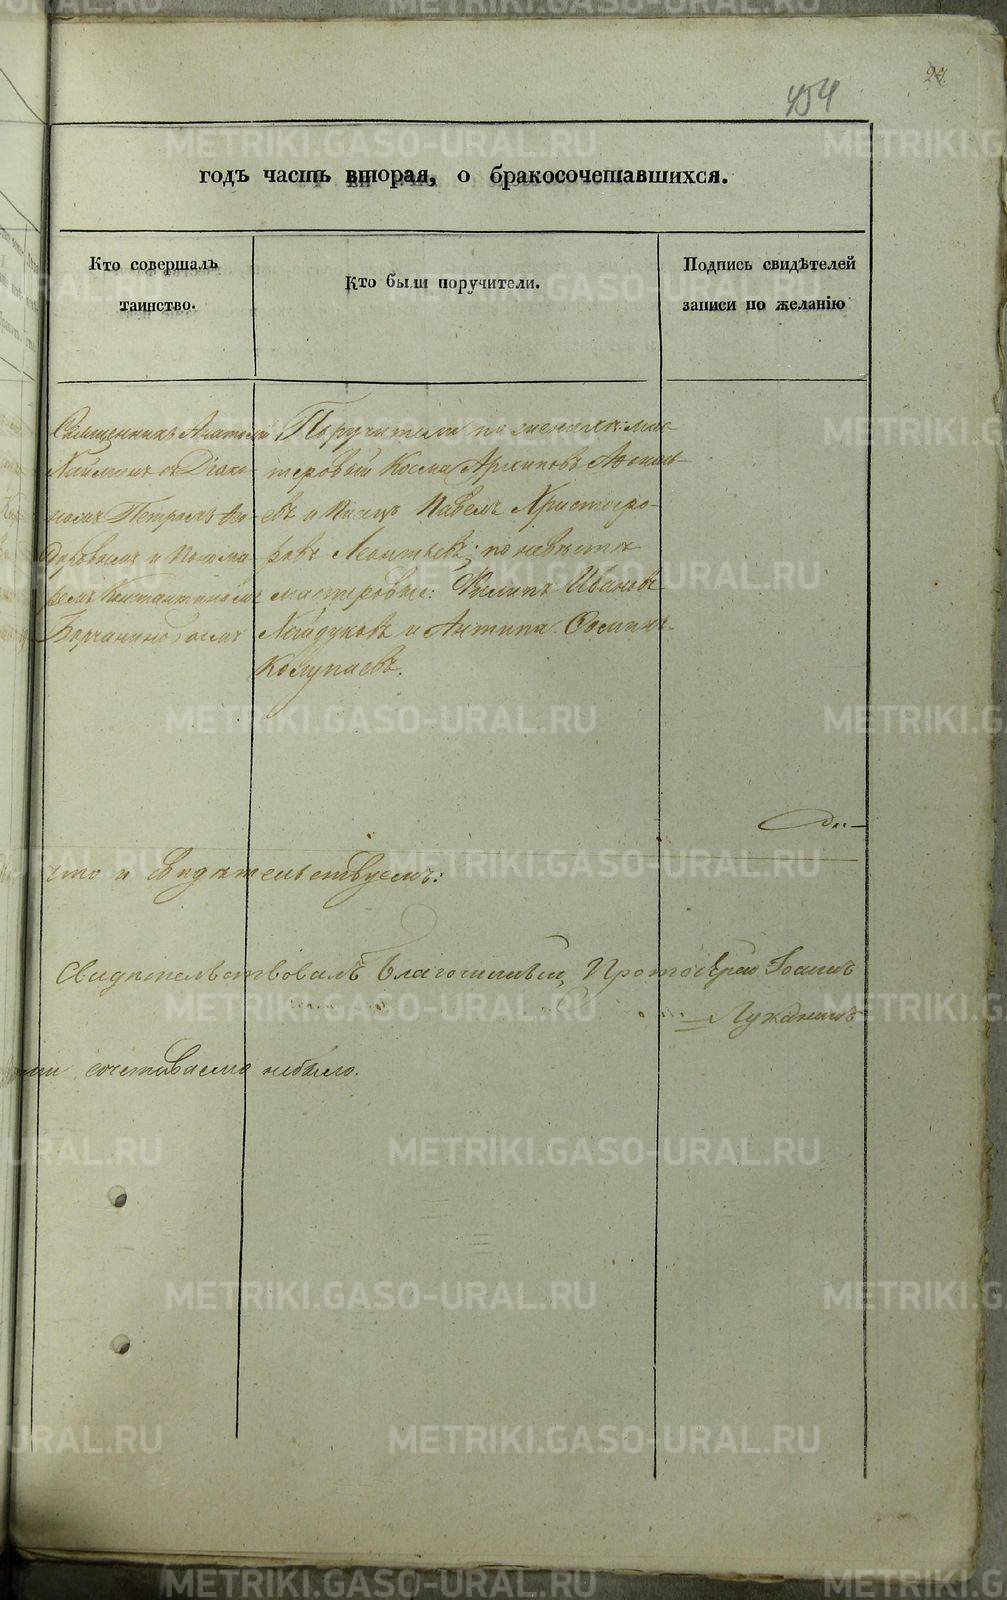 METRIKI.GASO-URAL.RU
454
24.
годъ часть вторая, о бракосочетавшихся.
Кто совершалъ
таинство.
Кто были поручители.
Подпись свидѣтелей
записи по желанію
Священникъ
съ Діако-
номъ Петромъ Ѳео-
доровымъ и Понома-
ремъ Константиномъ
Борчаниновымъ
Поручители по женихѣ: мас-
теровой Косма Архиповъ
евъ и Писецъ Павелъ Христофо-
ровъ Леонтьевъ; по невѣстѣ
мастеровые: Филипъ Ивановъ
Лейдуковъ и Антипа
Колупаевъ.
что и свидѣтельствуемъ:
Свидѣтельствовалъ Благочинный, Протоіерей Іоаннъ
Луканинъ
сочетаваемо небыло.